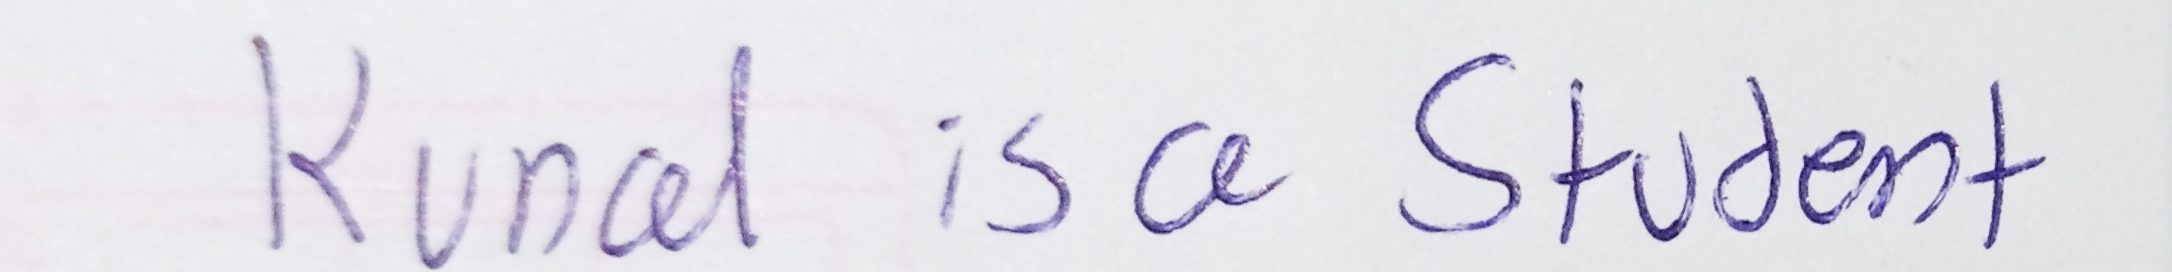 Kunal is a Student